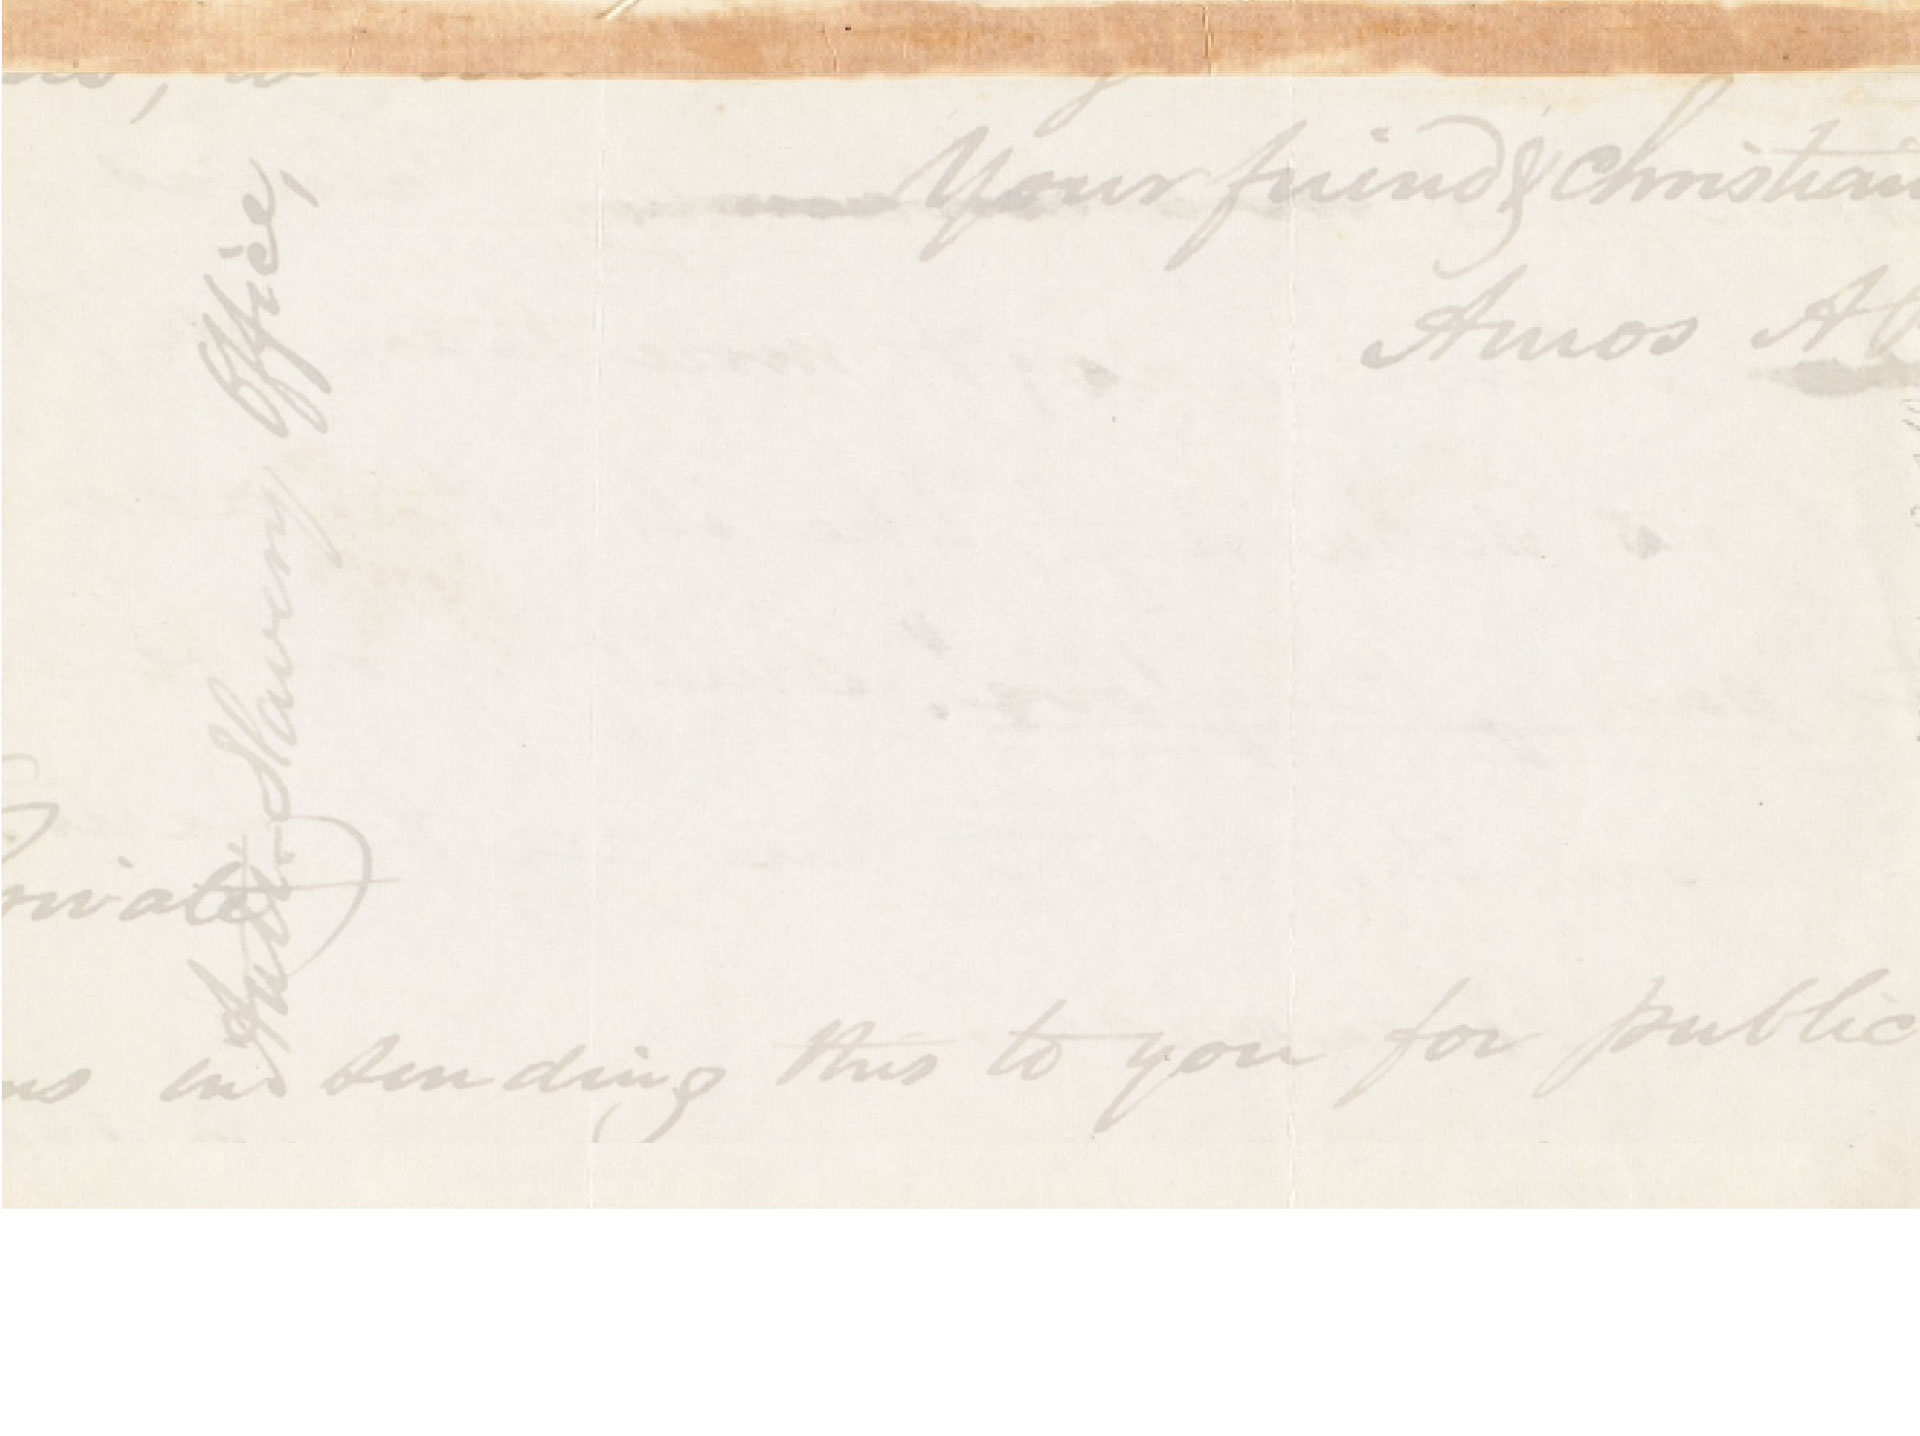 Your friend & Christian
Amos A
Anti-Slavery Office,
Private
sending this to you for public